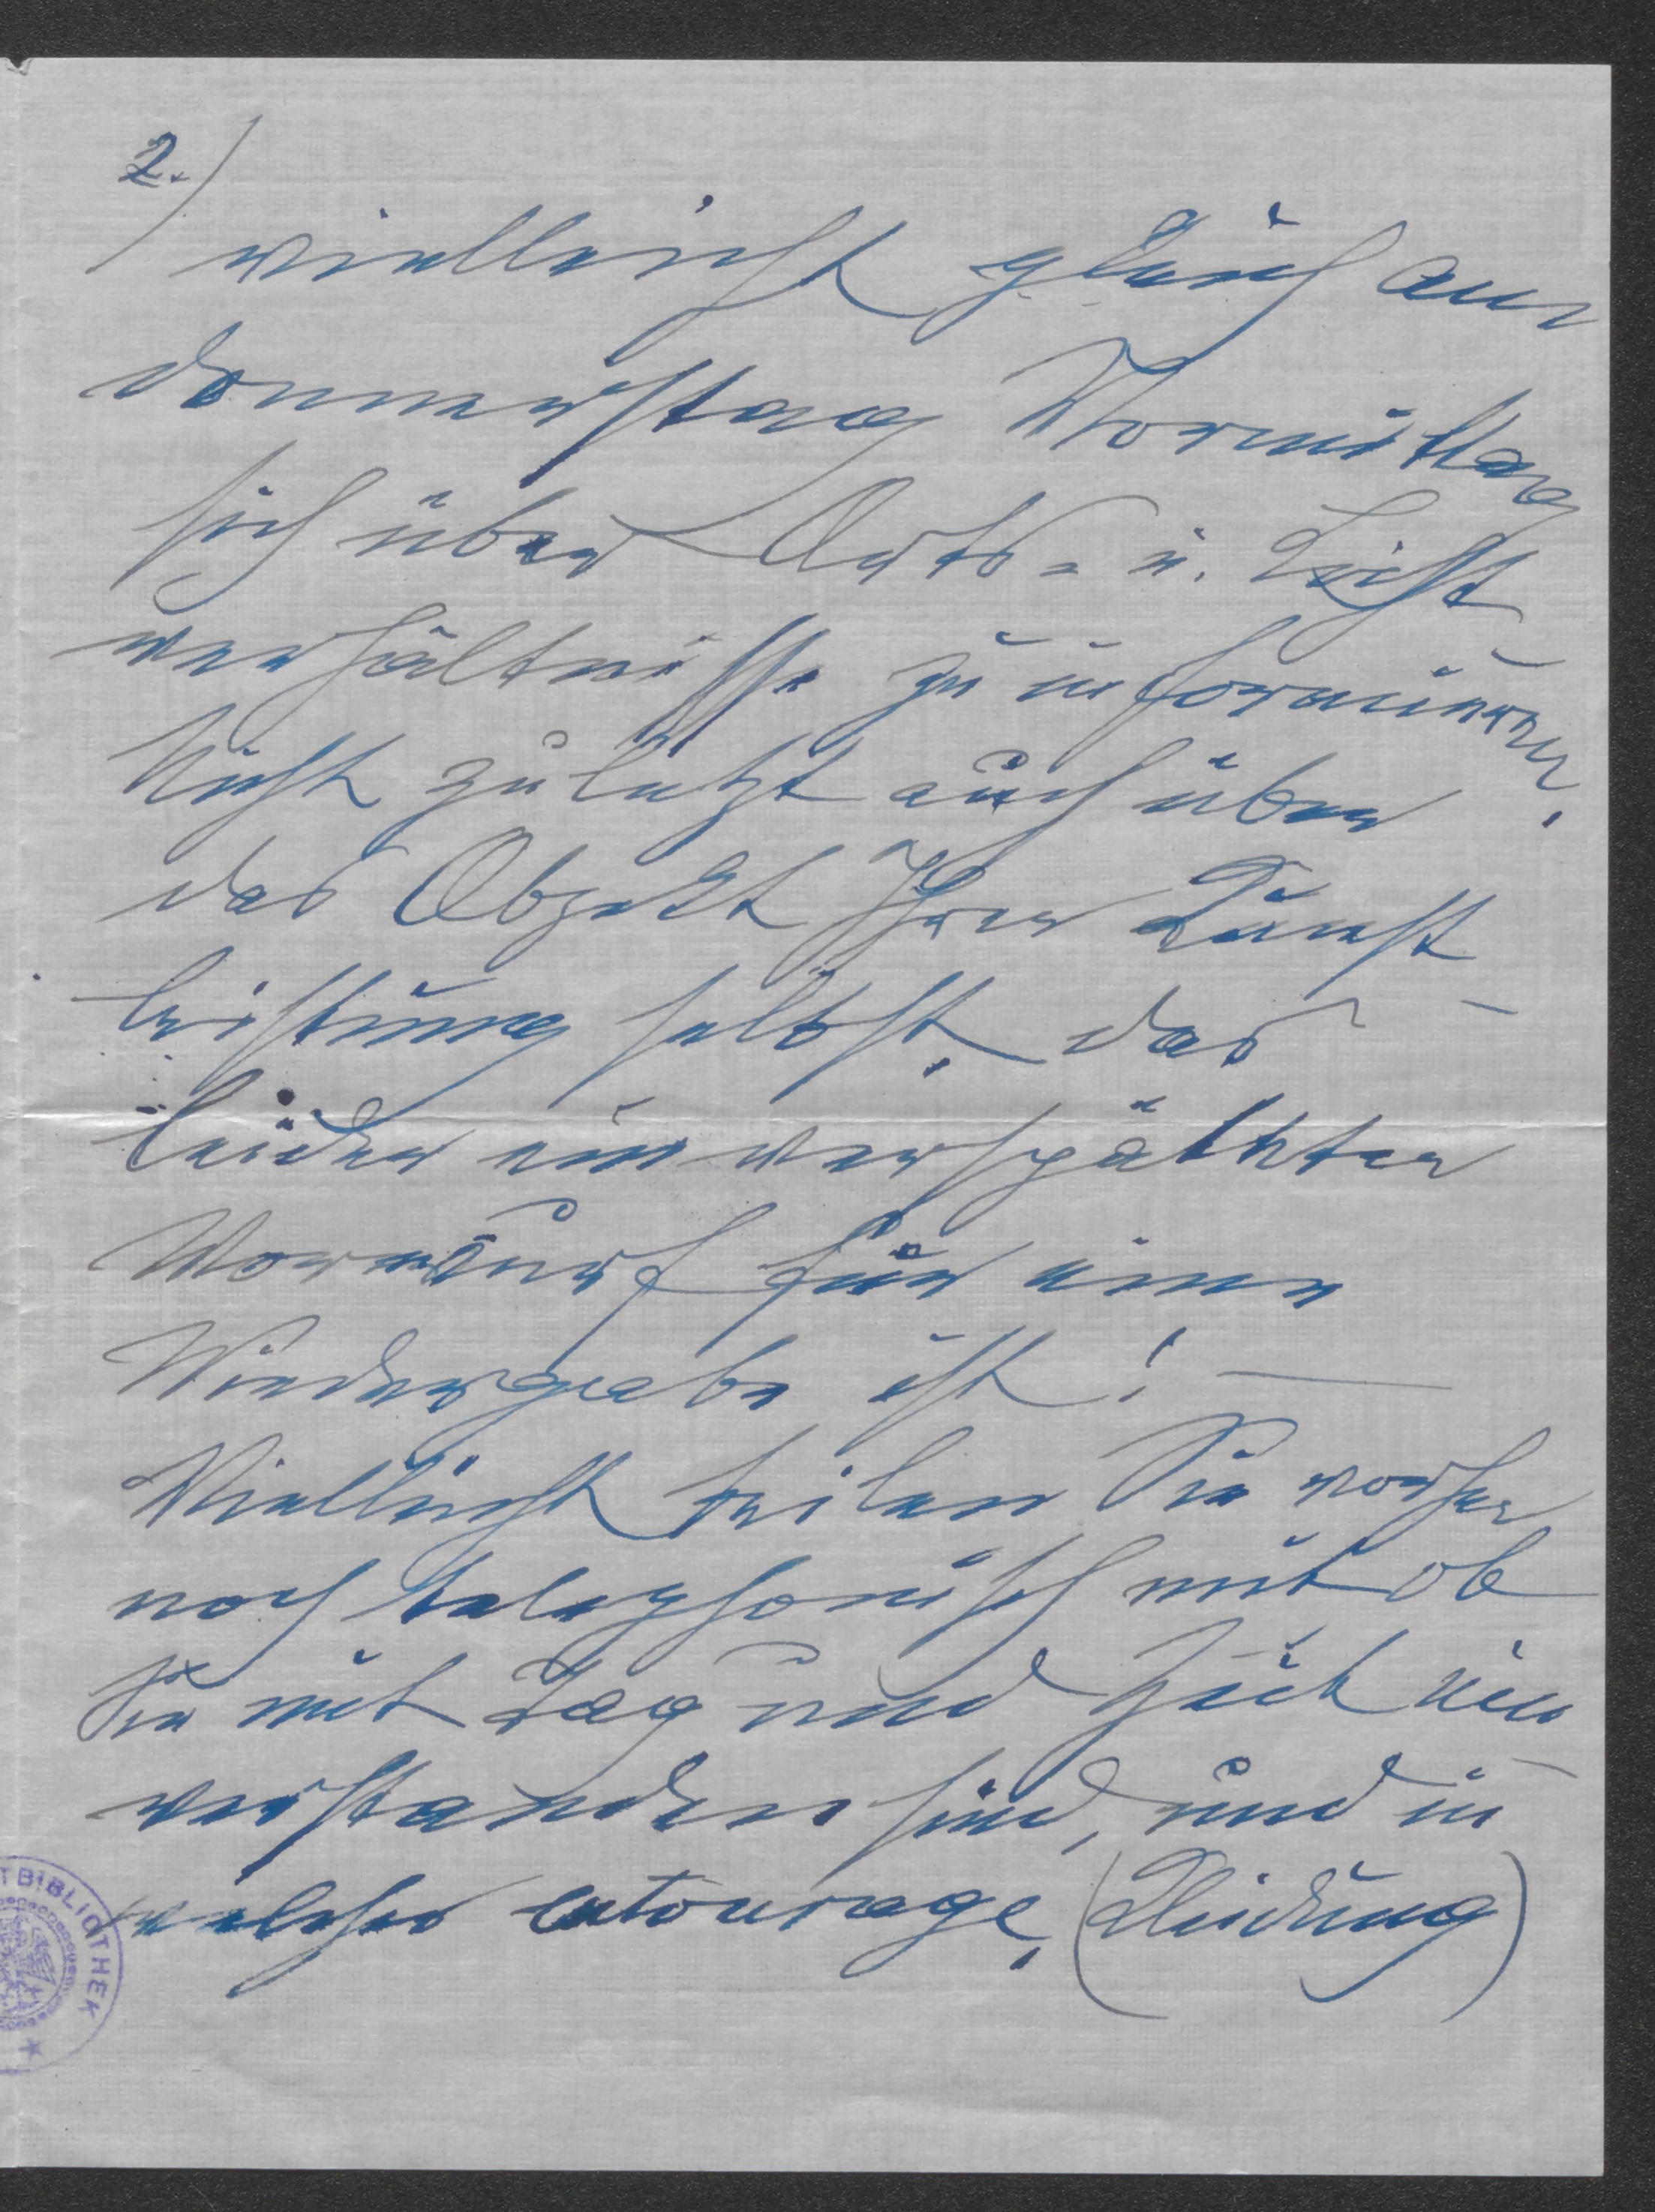 2.)
vielleicht gleich am
Donnerstag Vormittag
sich über Orts- u. Licht
verhältnisse zu informieren.
Nicht zuletzt auch über
das Objekt Ihrer Kunst
leistung selbst, das –
leider ein verspäteter
Vorwurf für eine
Wiedergabe ist! —
Vielleicht teilen Sie vorher
noch telephonisch mit ob
Sie mit Tag und Zeit ein
verstanden sind, und in
welcher entourage, (Kleidung)
TBIBLIOTHEK